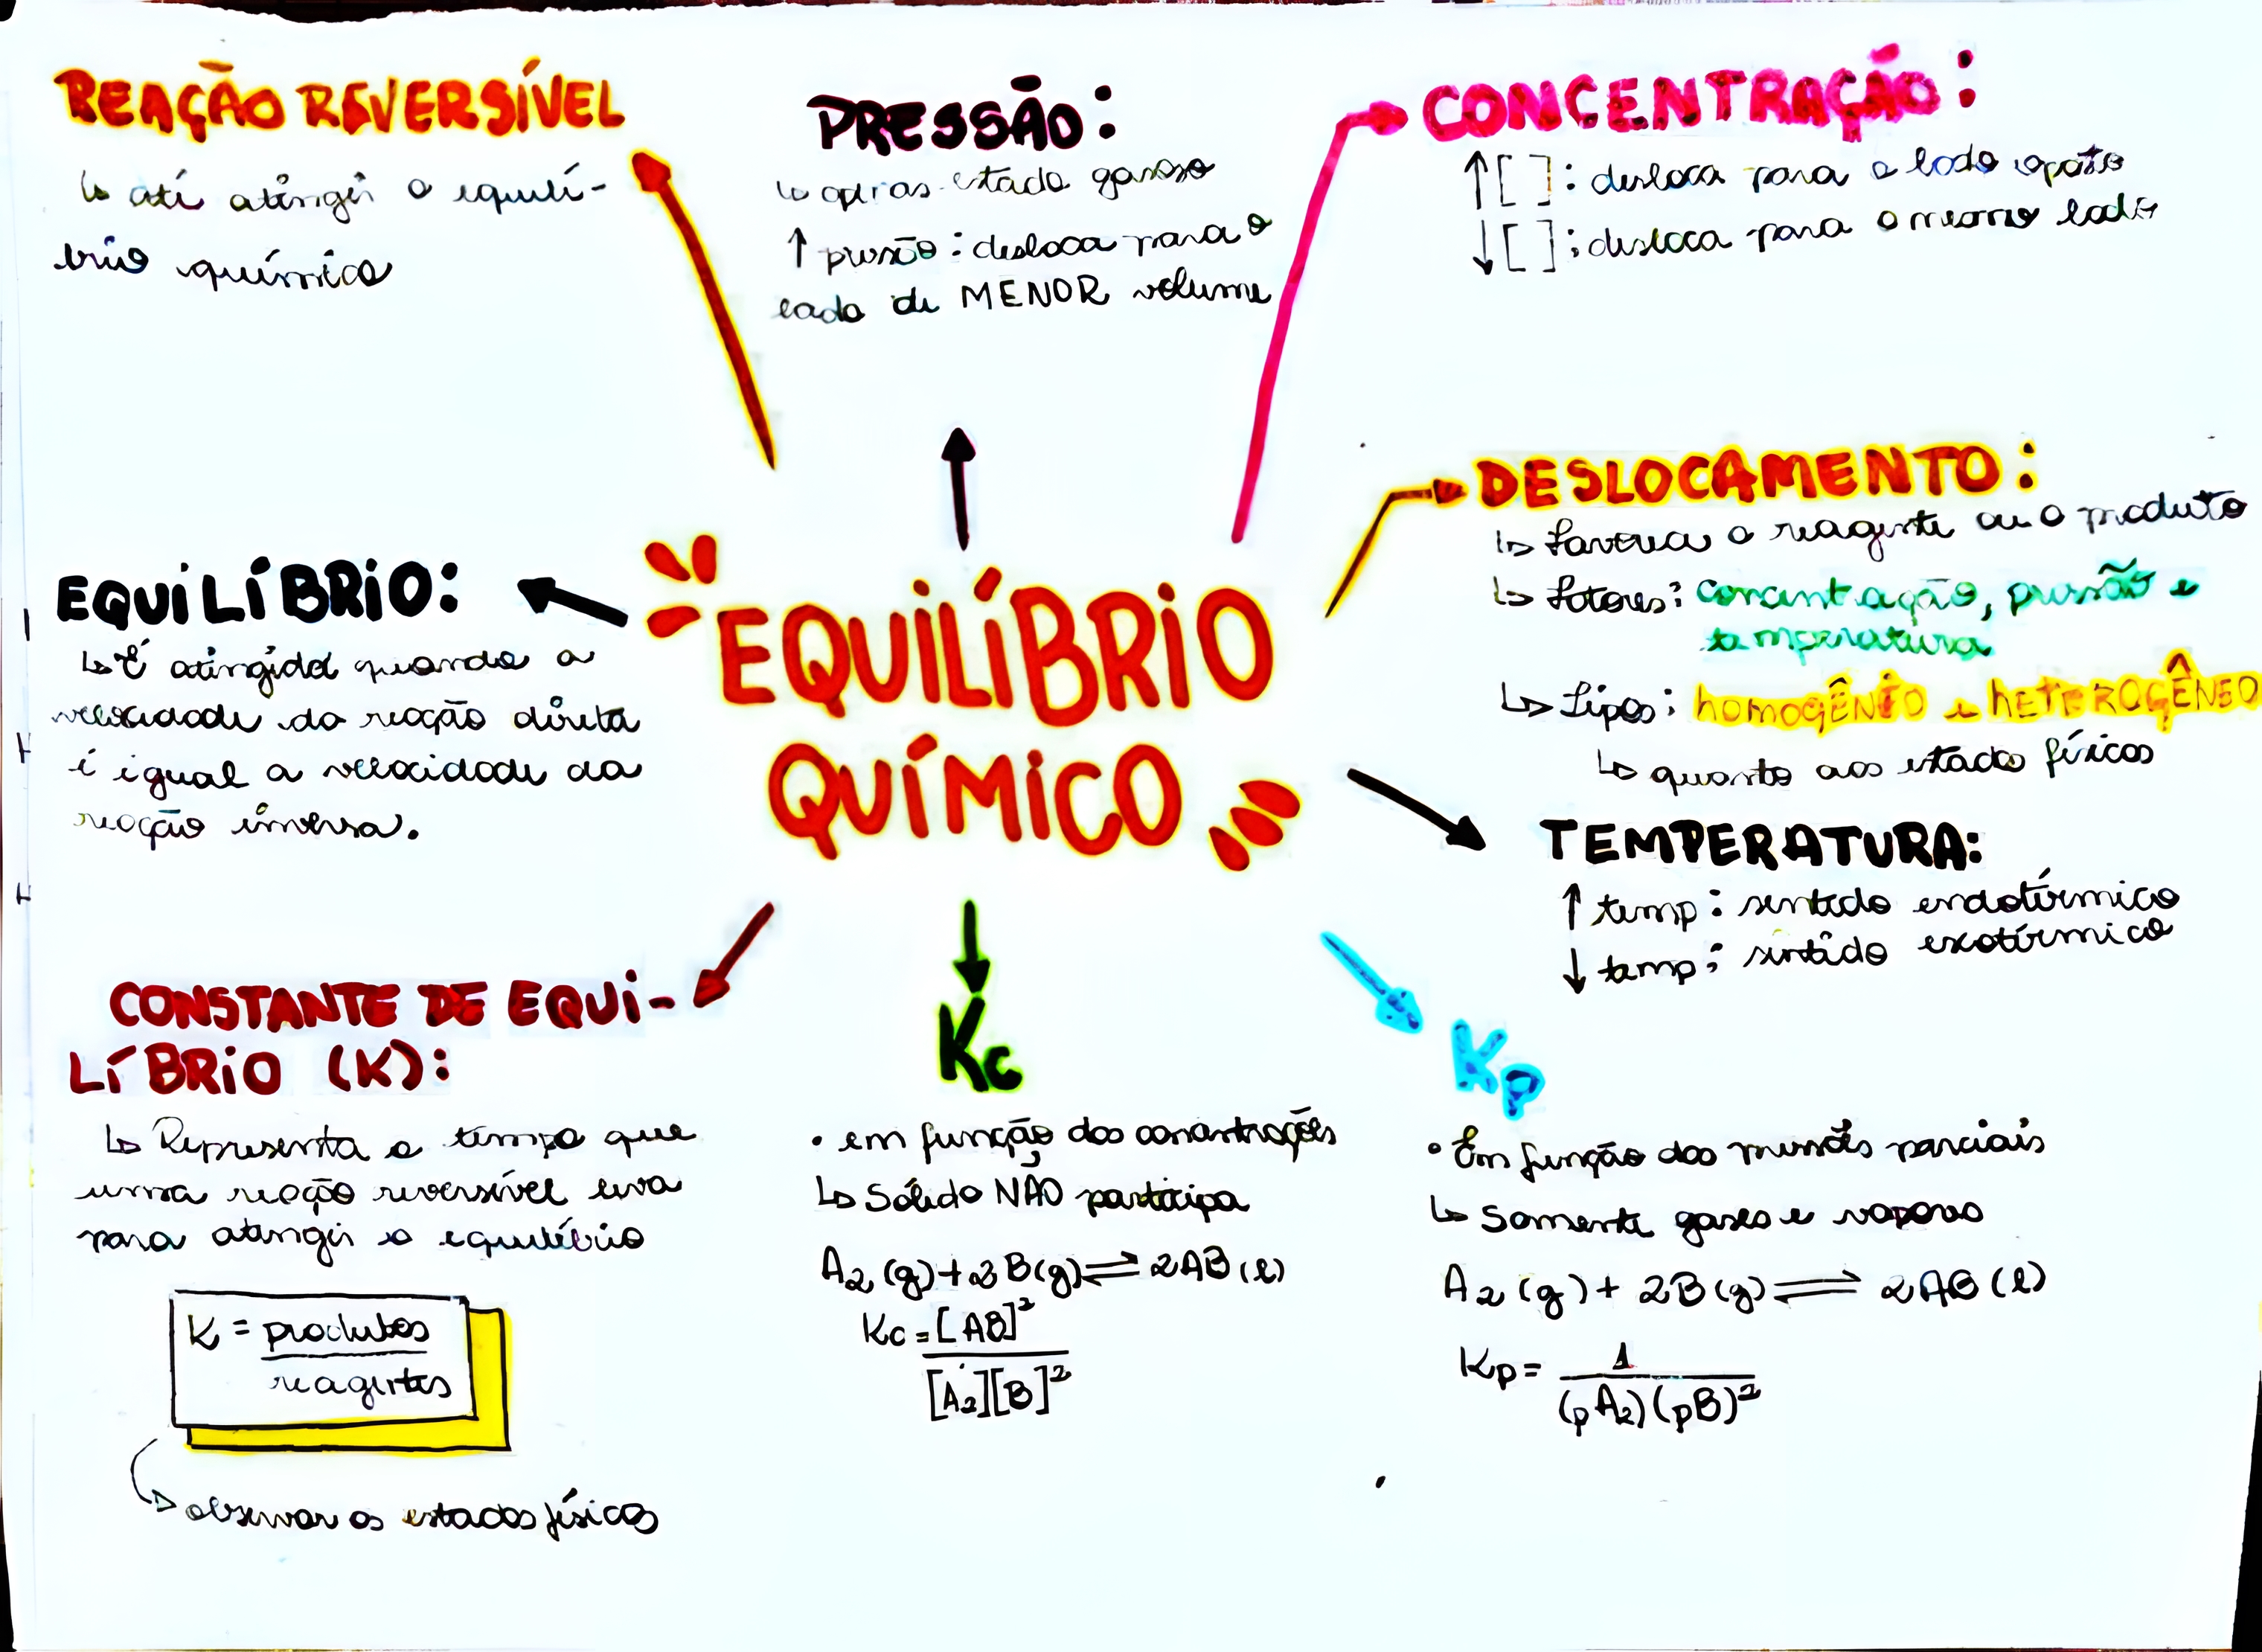 REAÇÃO REVERSÍVEL
↳ até atingir o equilí-
brio químico
PRESSÃO:
↳ apenas estado gasoso
↑ pressão: desloca para o
lado de MENOR volume
CONCENTRAÇÃO:
↑[ ]: desloca para o lado oposto
↓[ ]: desloca para o mesmo lado
DESLOCAMENTO:
↳ favorece o reagente ou o produto
↳ fatores: concentração, pressão e
temperatura
↳ tipos: homogênio e HETEROGÊNEO
↳ quanto aos estado físicos
EQUILÍBRIO:
↳ É atingida quando a
velocidade da reação direta
é igual a velocidade da
reação inversa.
EQUILÍBRIO
QUÍMICO
TEMPERATURA:
↑ temp: sentido endotérmico
↓ temp: sentido exotérmico
CONSTANTE DE EQUI-
LÍBRIO (K):
↳ Representa o tempo que
uma reação reversível leva
para atingir o equilíbrio
K = produtos
reagentes
↳ observar os estados físicos
Kc
• em função das concentrações
↳ Sólido NÃO participa
A₂ (g) + 2 B (g) ⇌ 2 AB (l)
Kc = [AB]²
[A₂][B]²
Kp
• Em função das pressões parciais
↳ Somente gases e vapores
A₂ (g) + 2B (g) ⇌ 2AB (l)
Kp = 1
(pA₂)(pB)²